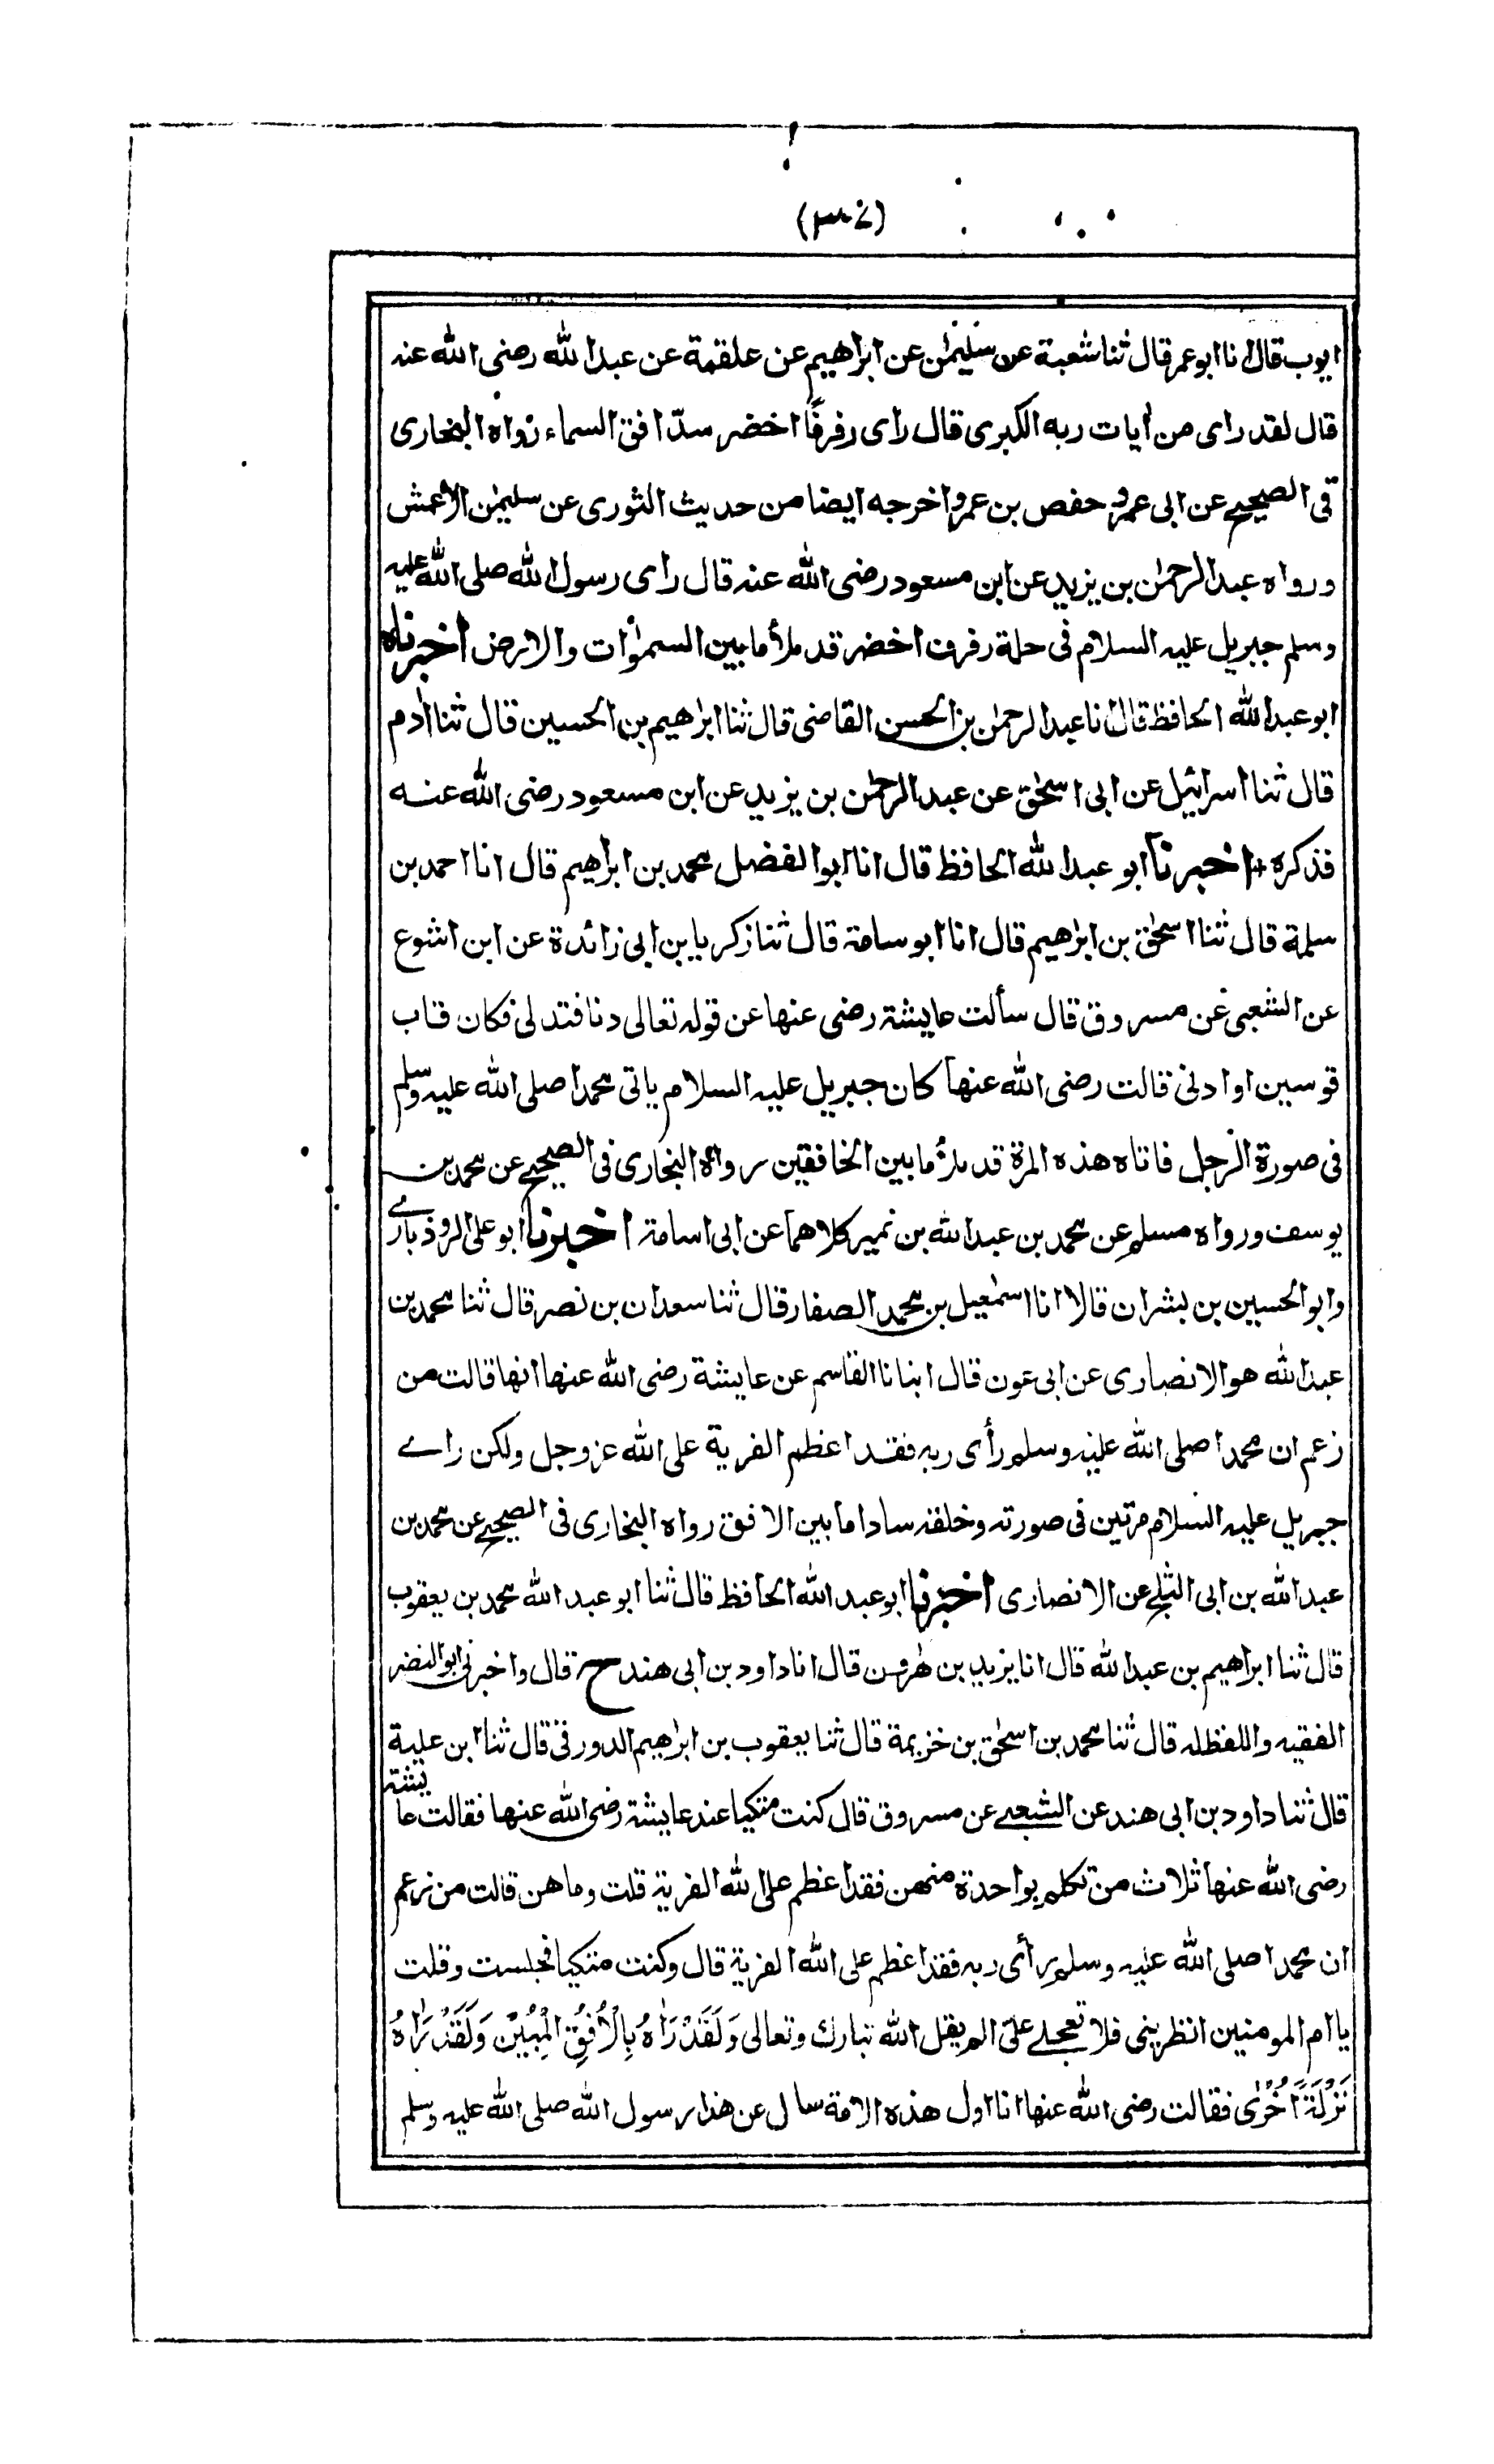 ايوب قال انا ابو عمر قال ثنا شعبة عن سليمٰن عن ابراهيم عن علقمة عن عبدالله رضى الله عنه
قال لقد راى من أيات ربه الكبرى قال راى رفرفًا اخضر سدّ افق السماء رواه البخارى
فى الصحيح عن ابى عمرو حفص بن عمرو اخرجه ايضا من حديث الثورى عن سليمٰن الاعمش
ورواه عبدالرحمٰن بن يزيد عن ابن مسعود رضى الله عنه قال راى رسول الله صلى الله عليه
وسلم جبريل عليه السلام فى حلة رفرف اخضر قد ملأ ما بين السمٰوات والارض اخبرناه
ابو عبدالله الحافظ قال انا عبدالرحمٰن بن الحسن القاضى قال ثنا ابراهيم بن الحسين قال ثنا ادم
قال ثنا اسرائيل عن ابى اسحٰق عن عبدالرحمٰن بن يزيد عن ابن مسعود رضى الله عنه
فذكره + اخبرنا ابو عبدالله الحافظ قال انا ابوالفضل محمد بن ابراهيم قال انا احمد بن
سلمة قال ثنا اسحٰق بن ابراهيم قال انا ابو سامة قال ثنا زكريا بن ابى زائدة عن ابن اشوع
عن الشعبى عن مسروق قال سألت عايشة رضى عنها عن قوله تعالى دنا فتدلى فكان قاب
قوسين او ادنى قالت رضى الله عنها كان جبريل عليه السلام ياتى محمدا صلى الله عليه وسلم
فى صورة الرجل فاتاه هذه المرة قد ملأ ما بين الخافقين رواه البخارى فى الصحيح عن محمد بن
يوسف ورواه مسلم عن محمد بن عبدالله بن نمير كلاهما عن ابى اسامة اخبرنا ابو على الروذبارے
وابو الحسين بن بشران قالا انا اسمٰعيل بن محمد الصفار قال ثنا سعدان بن نصر قال ثنا محمد بن
عبدالله هو الانصارى عن ابى عون قال ابنانا القاسم عن عايشة رضى الله عنها انها قالت من
زعم ان محمدا صلى الله عليه وسلم رأى ربه فقد اعظم الفرية على الله عزوجل ولكن راے
جبريل عليه السلام مرتين فى صورته وخلقه سادا ما بين الافق رواه البخارى فى الصحيح عن محمد بن
عبدالله بن ابى الثلج عن الانصارى اخبرنا ابو عبدالله الحافظ قال ثنا ابو عبدالله محمد بن يعقوب
قال ثنا ابراهيم بن عبدالله قال انا يزيد بن هٰرون قال انا داود بن ابى هند ح قال واخبرنى ابوالنضر
الفقيه واللفظ له قال ثنا محمد بن اسحٰق بن خزيمة قال ثنا يعقوب بن ابراهيم الدورقى قال ثنا ابن علية
قال ثنا داود بن ابى هند عن الشعبے عن مسروق قال كنت متكيا عند عايشة رضى الله عنها فقالت عايشة
رضى الله عنها ثلاث من تكلم بواحدة منهن فقد اعظم على الله الفرية قلت وما هن قالت من زعم
ان محمدا صلى الله عليه وسلم رأى ربه فقد اعظم على الله الفرية قال وكنت متكيا فجلست وقلت
يا ام المومنين انظرينى فلا تعجلے علىّ الم يقل الله تبارك وتعالى وَلَقَدْ رَاٰهُ بِالْاُفُقِ الْمُبِيْنِ وَلَقَدْ رَاٰهُ
نَزْلَةً اُخْرٰى فقالت رضى الله عنها انا اول هذه الامة سال عن هذا رسول الله صلى الله عليه وسلم